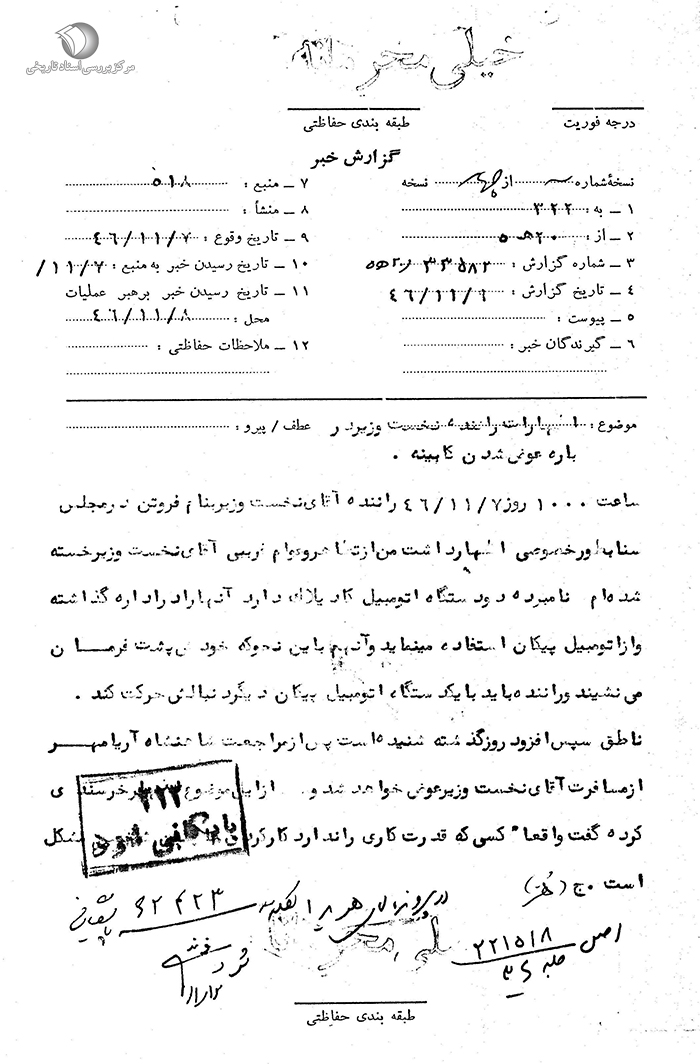 مرکز بررسی اسناد تاریخی
خیلی محرمانه
درجه فوریت
طبقه بندی حفاظتی
گزارش خبر
نسخهٔ شماره از چهار نسخه
۱ ــ به : ۳۲۲
۲ ــ از : ۲۰ ه‍ ۵
۳ ــ شماره گزارش : ۳۳۵۸۲
۴ ــ تاریخ گزارش : ۴۶/۱۱/۹
۵ ــ پیوست :
۶ ــ گیرندگان خبر :
۷ ــ منبع : ۵۱۸
۸ ــ منشأ :
۹ ــ تاریخ وقوع : ۴۶/۱۱/۷
۱۰ ــ تاریخ رسیدن خبر به منبع : ۱۱/۷/
۱۱ ــ تاریخ رسیدن خبر برهبر عملیات
محل : ۴۶/۱۱/۸
۱۲ ــ ملاحظات حفاظتی :
موضوع : اظهارات راننده نخست وزیر در
عطف / پیرو :
باره عوض شدن کابینه .
ساعت ۱۰۰۰ روز ۴۶/۱۱/۷ راننده آقای نخست وزیر بنام فروتن در مجلس
سنا بطور خصوصی اظهار داشت من از تظاهر و عوام فریبی آقای نخست وزیر خسته
شده‌ام نامبرده دو دستگاه اتومبیل کادیلاک دارد آنها را در اداره گذاشته
و از اتومبیل پیکان استفاده مینماید و آنهم باین نحو که خودش پشت فرمــان
می نشیند و راننده باید با یک دستگاه اتومبیل پیکان دیگر دنبالش حرکت کند .
ناطق سپس افزود روز گذشته شنیده است پس از مراجعت شاهنشاه آریامهــر
از مسافرت آقای نخست وزیر عوض خواهد شد و از این موضوع خرسندی
کرده گفت واقعا" کسی که قدرت کاری را ندارد کار کردن مشکل
است . ج (هز)
۳۲۲
بایگانی شود
در پرونده هویدا ۶۲۴۲۳ بایگانی
اصل ۲۲۱۵۱۸
خیلی محرمانه
طبقه بندی حفاظتی